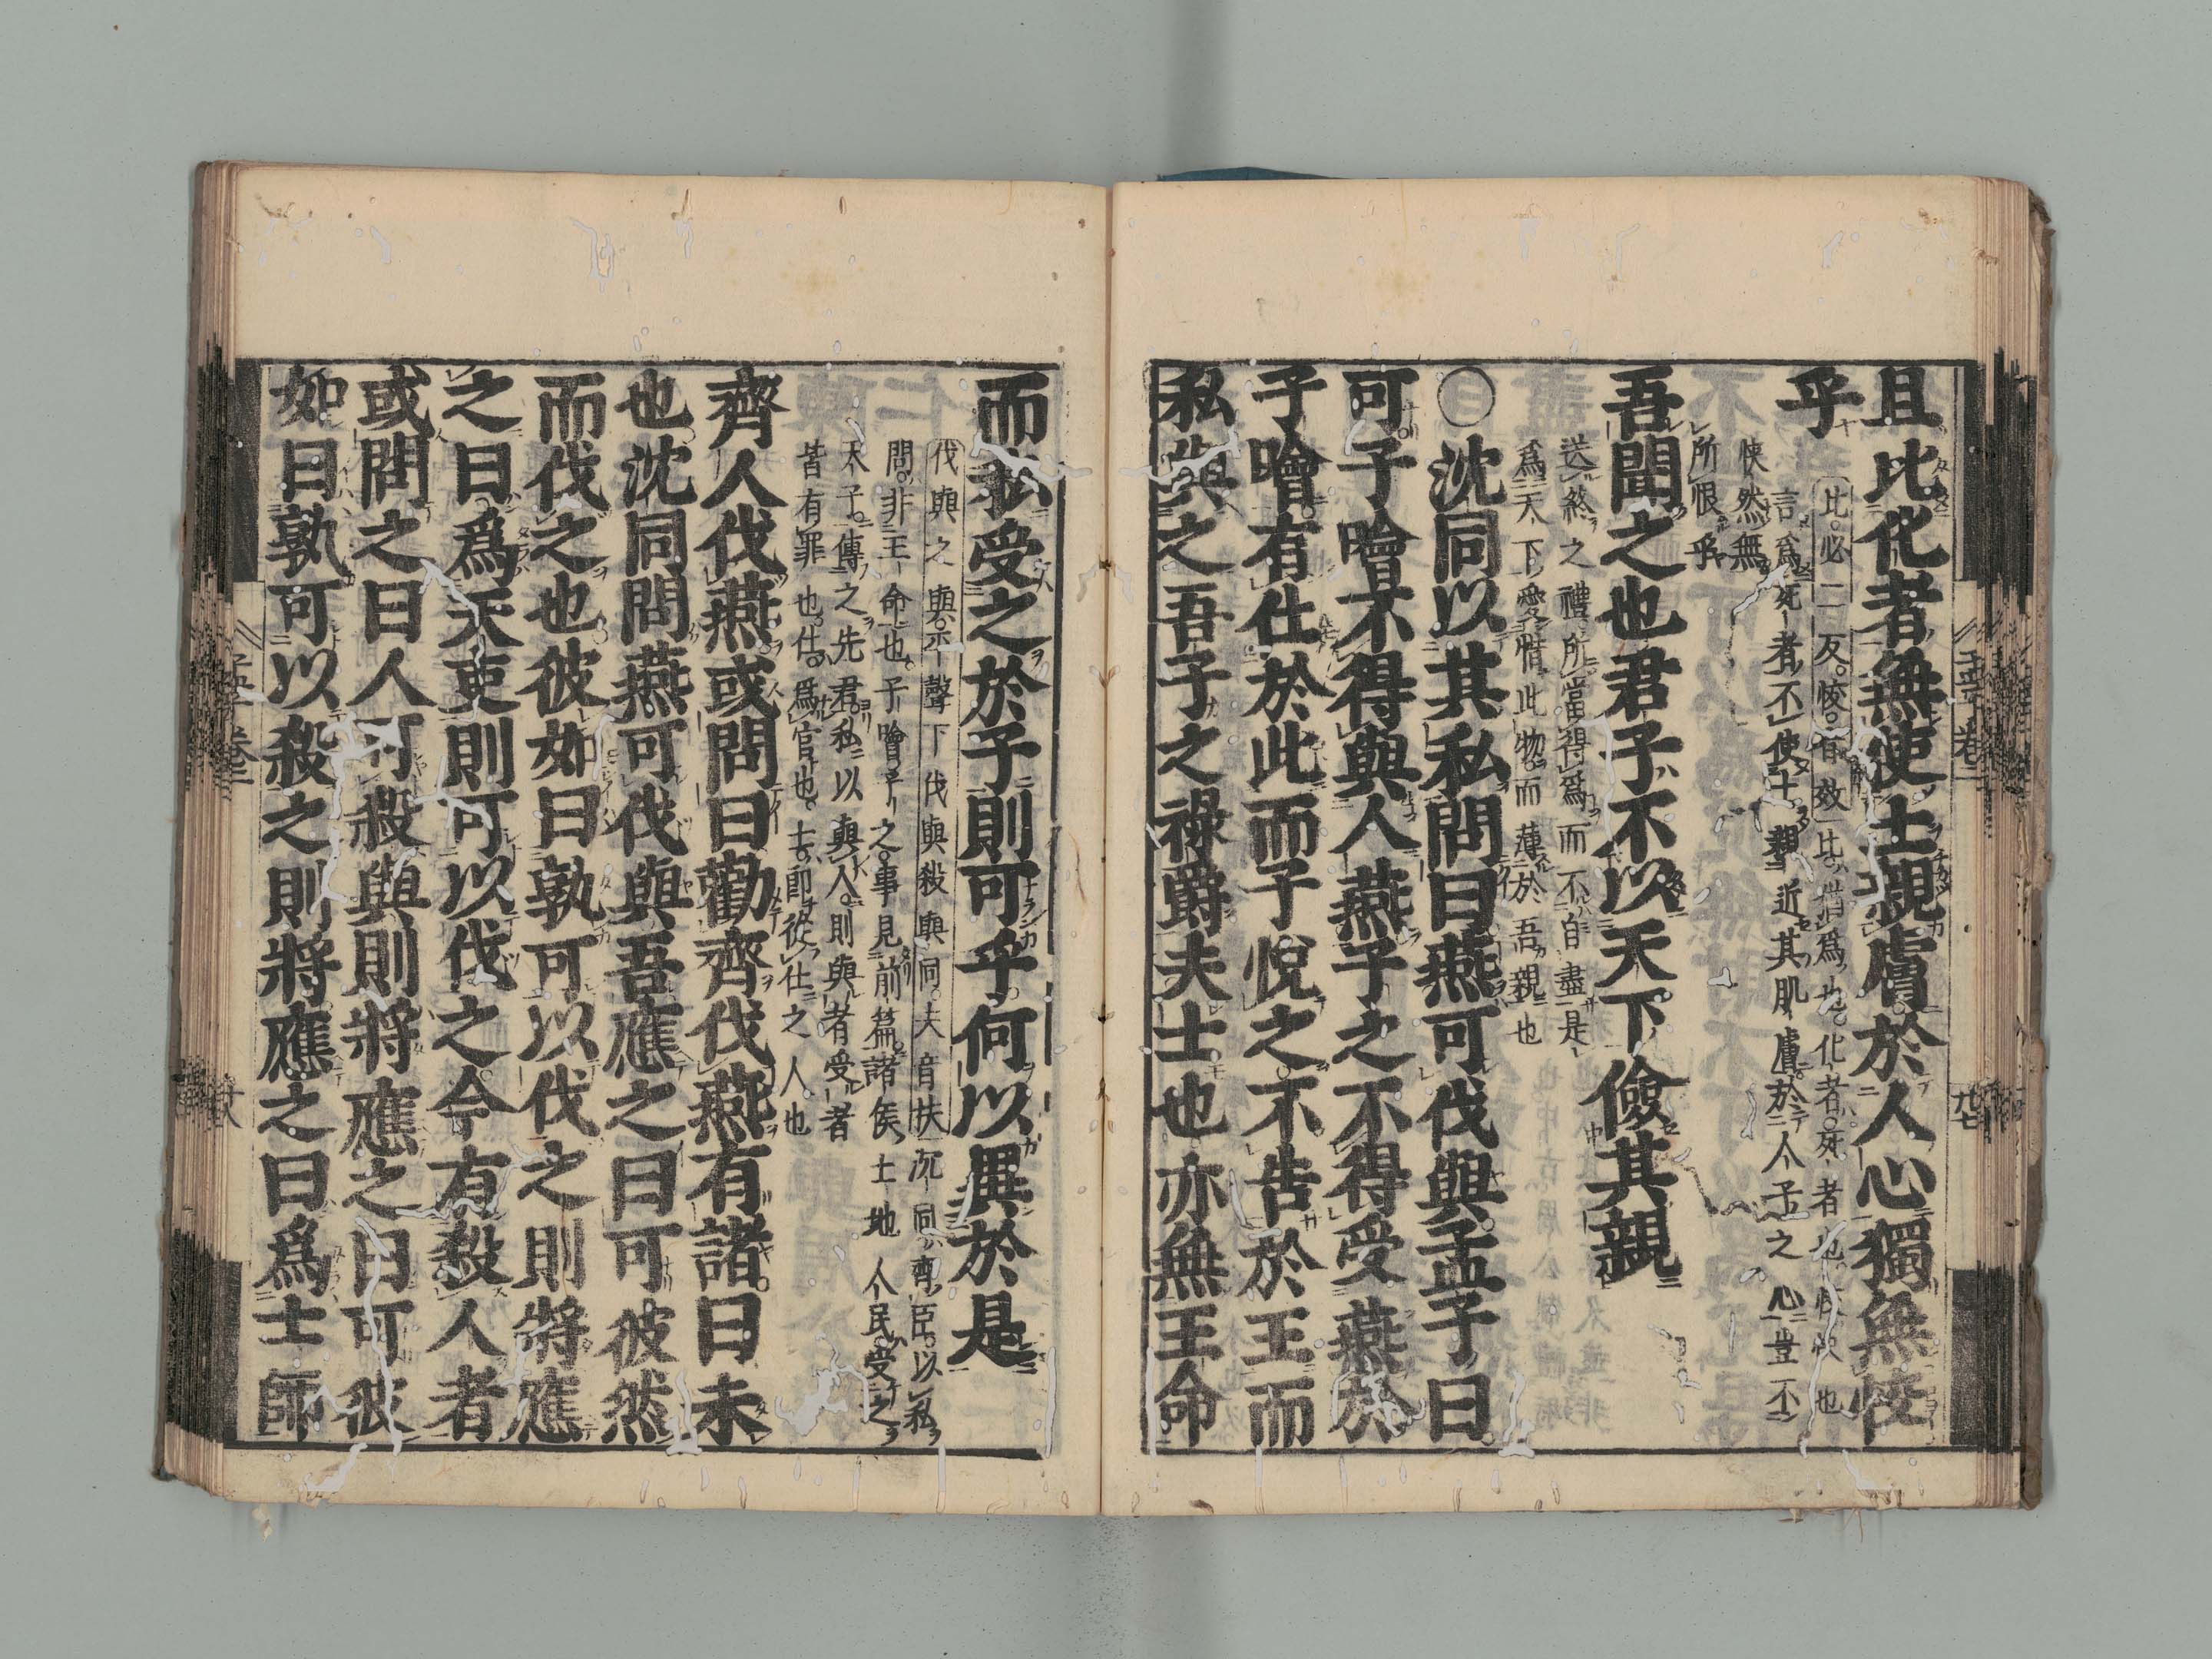 且比化者無使土親膚於人心獨無恔
乎
比必二反恔音效比猶爲也化者死者也恔快也
言爲死者不使土親近其肌膚於人子之心豈不
快然無
所恨乎
吾聞之也君子不以天下儉其親
送終之禮所當得爲而不自盡是
爲天下愛惜此物而薄於吾親也
〇沈同以其私問曰燕可伐與孟子曰
可子噲不得與人燕子之不得受燕於
子噲有仕於此而子悅之不告於王而
私與之吾子之祿爵夫士也亦無王命
而私受之於子則可乎何以異於是
伐與之與平聲下伐與殺與同夫音扶沈同齊臣以私
問非王命也子噲子之事見前篇諸侯土地人民受之
天子傳之先君私以與人則與者受者
皆有罪也仕爲官也士卽從仕之人也
齊人伐燕或問曰勸齊伐燕有諸曰未
也沈同問燕可伐與吾應之曰可彼然
而伐之也彼如曰孰可以伐之則將應
之曰爲天吏則可以伐之今有殺人者
或問之曰人可殺與則將應之曰可彼
如曰孰可以殺之則將應之曰爲士師